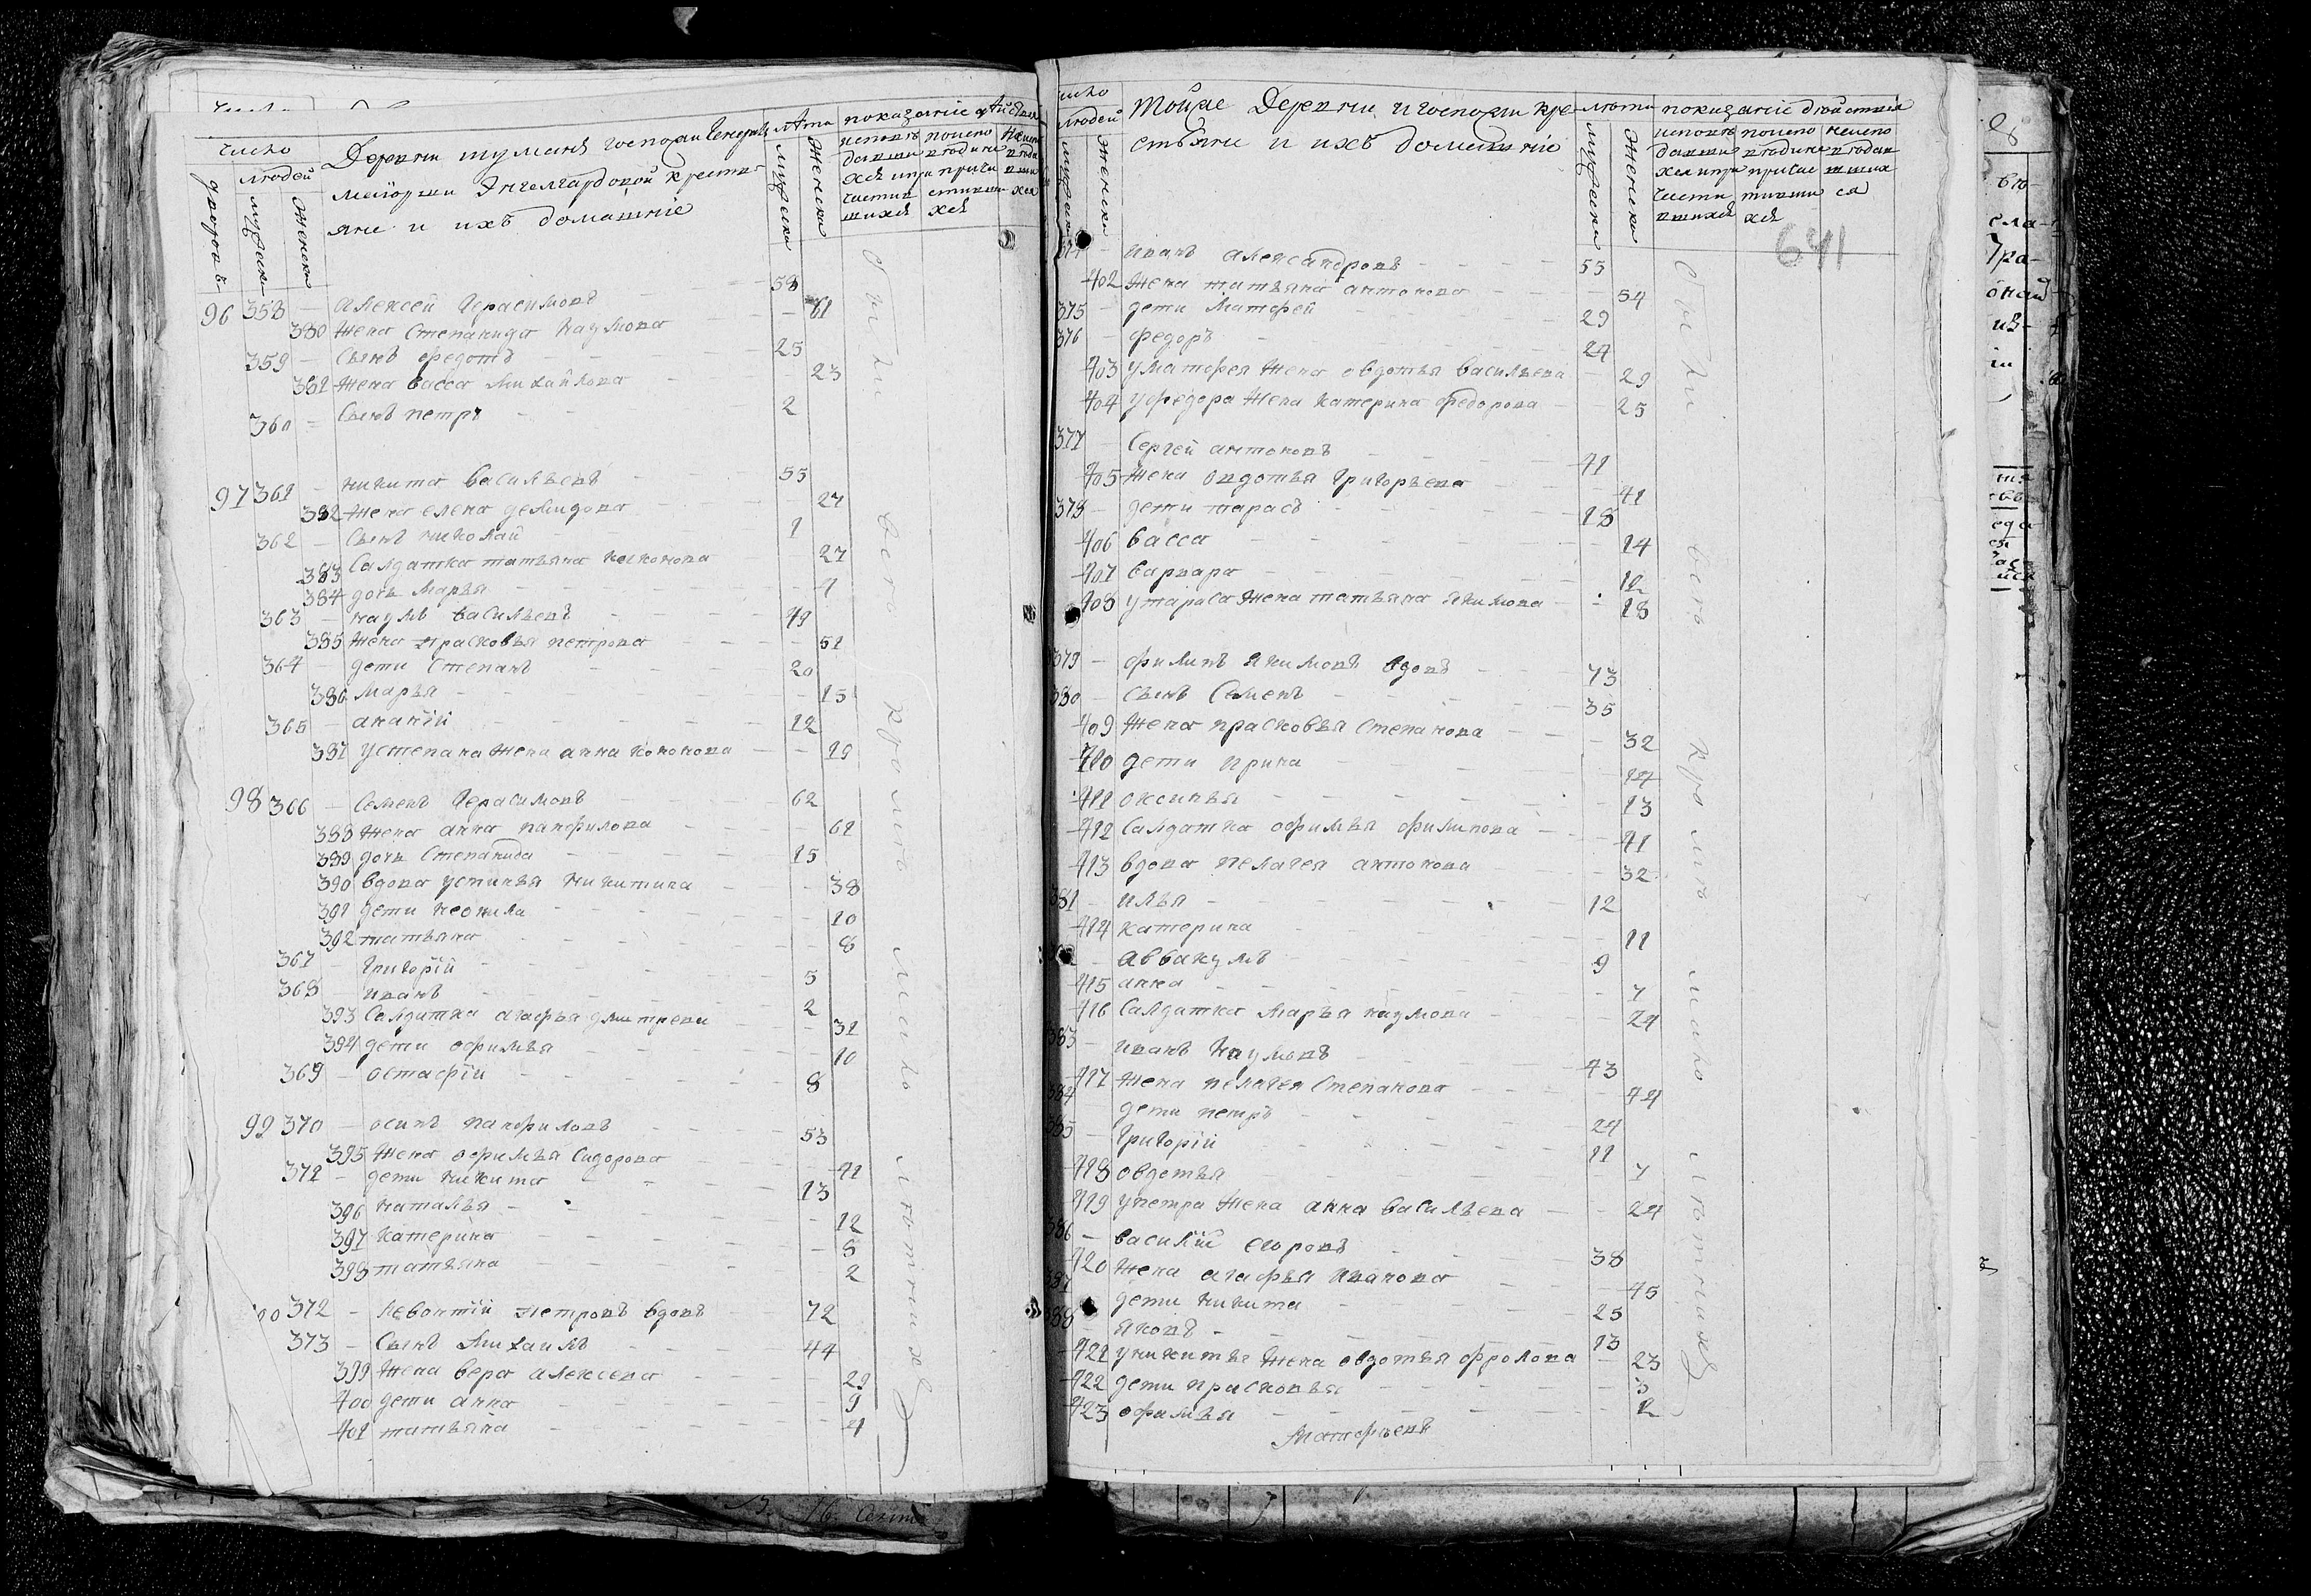 число
Деревни тумана госпожи Генералъ
дворовъ
людей
мужска
женска
маиорши Энгелгардовой крестья
яне и ихъ домашніе
лѣта
мужска
женска
показаніе дѣйствія
исповѣ
давши
хся и при
частив
шихся
96 358 – Алексей Герасимовъ 58
380 жена Степанида Наумова 61
359 – сынъ Федотъ 25
381 жена васса Михайлова 23
360 – сынъ петръ 2
97 361 – никита васильевъ 55
382 жена елена демидова 27
362 – сынъ николай 1
383 салдатка татьяна никонова 27
384 дочь Марья 4
363 – наумъ васильевъ 49
385 жена прасковья петрова 51
364 – дети Степанъ 20
386 марья 15
365 – ананій 12
387 устепана жена анна кононова 19
98 366 – Семенъ Герасимовъ 62
388 жена анна панфилова 61
389 дочь Степанида 15
390 вдова устинья никитина 38
391 дети неонила 10
392 татьяна 8
367 – григорій 5
368 – иванъ 2
393 Салдатка агафья дмитрева 31
394 дети офимья 10
369 – остафій 8
99 370 – осипъ панфиловъ 53
395 жена офимья Сидорова 41
371 – дети никита 13
396 наталья 12
397 катерина 8
398 татьяна 2
100 372 – Левонтій петровъ вдовъ 72
373 – Сынъ михаилъ 44
399 жена вера алексева 29
400 дети анна 9
401 татьяна 4
всего кромѣ малолѣтнихъ
число
людей
мужска
женска
Тойже Деревни и госпожи кре-
стьяне и ихъ домашніе
лѣта
мужска
женска
показаніе дѣйствія
исповѣ
давши
хся и при
части
вшихся
641
374 – иванъ александровъ 55
402 жена татьяна антонова 54
375 – дети Матфей 29
376 – федоръ 24
403 уматфея жена овдотья васильева 29
404 уфедора жена катерина федорова 25
377 – Сергей антоновъ 41
405 жена овдотья григорьева 41
378 – дети тарасъ 18
406 васса 14
407 варвара 12
408 утараса жена татьяна якимова 18
379 – филипъ якимовъ вдовъ 73
380 – сынъ Семенъ 35
409 жена прасковья степанова 32
410 дети ирина 14
411 оксинья 13
412 салдатка офимья филипова 41
413 вдова пелагея антонова 32
381 – илья 12
414 катерина 11
382 – аввакумъ 9
415 анна 7
416 Салдатка марья наумова 24
383 – иванъ наумовъ 43
417 жена пелагея Степанова 44
384 – дети петръ 24
385 – григорій 11
418 овдотья 7
419 упетра жена анна васильева 24
386 – василій егоровъ 38
420 жена агафья иванова 45
387 – дети никита 25
388 – яковъ 13
421 уникиты жена овдотья фролова 23
422 дети прасковья 3
423 офимья 2
Матфѣевъ
всего кромѣ малолѣтнихъ